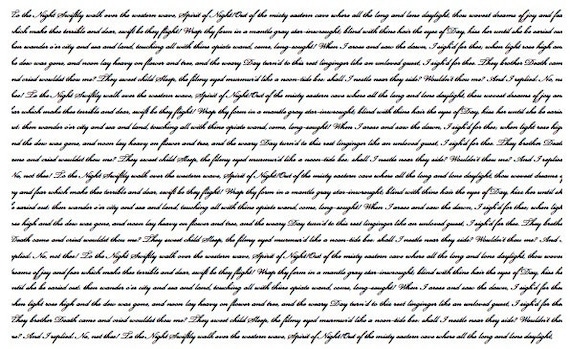 To the Night Swiftly walk over the western wave, Spirit of Night!Out of the misty eastern cave where all the long and lone daylight, thou wovest dreams of joy and fea
which make thee terrible and dear, swift be thy flight! Wrap thy form in a mantle gray star-inwrought, blind with thine hair the eyes of Day, kiss her until she be wearied out.
then wander o'er city and sea and land, touching all with thine opiate wand, come, long-sought! When I arose and saw the dawn, I sigh'd for thee, when light rose high an
he dew was gone, and noon lay heavy on flower and tree, and the weary Day turn'd to this rest longinger like an unloved guest, I sigh'd for thee. They brother Death cam
nd cried wouldst thou me? They sweet child Sleep, the filmy eyed murmur'd like a noon-tide bee. shall I nestle near they side? Wouldn't thou me? And I replied. No, no
hee! To the Night Swiftly walk over the western wave, Spirit of Night!Out of the misty eastern cave where all the long and lone daylight, thou wovest dreams of joy an
ear which make thee terrible and dear, swift be thy flight! Wrap thy form in a mantle gray star-inwrought, blind with thine hair the eyes of Day, kiss her until she be wearie
ut. then wander o'er city and sea and land, touching all with thine opiate wand, come, long-sought! When I arose and saw the dawn, I sigh'd for thee, when light rose high
nd the dew was gone, and noon lay heavy on flower and tree, and the weary Day turn'd to this rest longinger like an unloved guest, I sigh'd for thee. They brother Death
ame and cried wouldst thou me? They sweet child Sleep, the filmy eyed murmur'd like a noon-tide bee. shall I nestle near they side? Wouldn't thou me? And I replie
No, not thee! To the Night Swiftly walk over the western wave, Spirit of Night!Out of the misty eastern cave where all the long and lone daylight, thou wovest dreams
y and fear which make thee terrible and dear, swift be thy flight! Wrap thy form in a mantle gray star-inwrought, blind with thine hair the eyes of Day, kiss her until sh
e wearied out. then wander o'er city and sea and land, touching all with thine opiate wand, come, long-sought! When I arose and saw the dawn, I sigh'd for thee, when light
ose high and the dew was gone, and noon lay heavy on flower and tree, and the weary Day turn'd to this rest longinger like an unloved guest, I sigh'd for thee. They brothe
Death came and cried wouldst thou me? They sweet child Sleep, the filmy eyed murmur'd like a noon-tide bee. shall I nestle near they side? Wouldn't thou me? And
eplied. No, not thee! To the Night Swiftly walk over the western wave, Spirit of Night!Out of the misty eastern cave where all the long and lone daylight, thou woves
reams of joy and fear which make thee terrible and dear, swift be thy flight! Wrap thy form in a mantle gray star-inwrought, blind with thine hair the eyes of Day, kiss he
ntil she be wearied out. then wander o'er city and sea and land, touching all with thine opiate wand, come, long-sought! When I arose and saw the dawn, I sigh'd for thee,
hen light rose high and the dew was gone, and noon lay heavy on flower and tree, and the weary Day turn'd to this rest longinger like an unloved guest, I sigh'd for the
They brother Death came and cried wouldst thou me? They sweet child Sleep, the filmy eyed murmur'd like a noon-tide bee. shall I nestle near they side? Wouldn't tho
me? And I replied. No, not thee! To the Night Swiftly walk over the western wave, Spirit of Night!Out of the misty eastern cave where all the long and lone daylight,